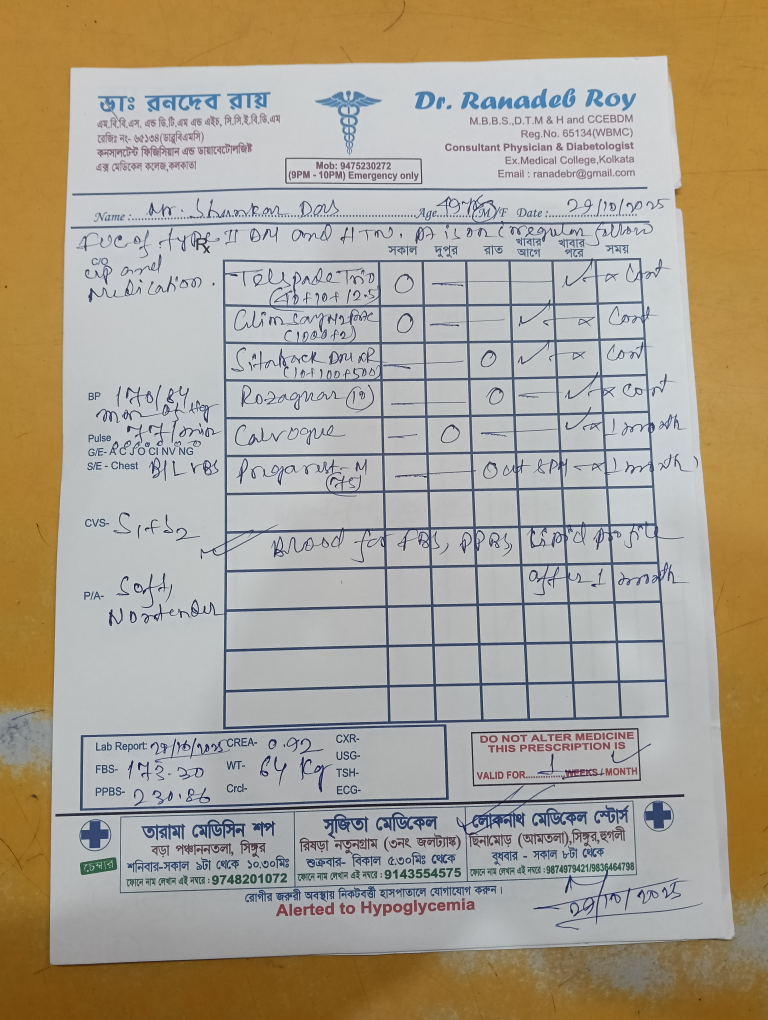 ডাঃ রনদেব রায়
এম.বি.বি.এস. এন্ড ডি.টি.এম এন্ড এইচ, সি.সি.ই.বি.ডি.এম
রেজিঃ নং- ৬৫১৩৪(ডাব্লুবিএমসি)
কনসালটেন্ট ফিজিসিয়ান এন্ড ডায়াবেটোলজিষ্ট
এক্স মেডিকেল কলেজ,কলকাতা
Mob: 9475230272
(9PM - 10PM) Emergency only
Dr. Ranadeb Roy
M.B.B.S.,D.T.M & H and CCEBDM
Reg.No. 65134(WBMC)
Consultant Physician & Diabetologist
Ex.Medical College,Kolkata
Email : ranadebr@gmail.com
Name : Mr. Shankar Das Age 49 M/F Date : 29/10/2025
of type II DM and HTN. Pt is on irregular follow
Rx
C/O
up and
Medication.
সকাল দুপুর রাত খাবার আগে খাবার পরে সময়
Trio O — ✓ × Cont
(40+10+12.5)
O — ✓ × Cont
(1000+2)
— O ✓ × Cont
(10+100+500)
(10) — O ✓ × cont
— O — ✓ × 1 month
- M — O × 1 month
(75)
BP 170/84
mm of Hg
Pulse 77/min
G/E- A C J O CI NV NG
S/E - Chest B/L VBS
CVS- S1+S2
P/A- Soft,
Nontender
Blood for FBS, PPBS, Lipid profile
after 1 month
Lab Report: 29/10/2025 CREA- 0.92 CXR-
FBS- 173.20 WT- 64 Kg USG-
TSH-
PPBS- 230.86 Crcl- ECG-
DO NOT ALTER MEDICINE
THIS PRESCRIPTION IS
VALID FOR 1 WEEKS / MONTH
চেম্বার
তারামা মেডিসিন শপ
বড়া পঞ্চাননতলা, সিঙ্গুর
শনিবার-সকাল ৯টা থেকে ১০.৩০মিঃ
ফোনে নাম লেখান এই নম্বরে : 9748201072
সৃজিতা মেডিকেল
রিষড়া নতুনগ্রাম (৩নং জলট্যাঙ্ক)
শুক্রবার- বিকাল ৫.৩০মিঃ থেকে
ফোনে নাম লেখান এই নম্বরে : 9143554575
লোকনাথ মেডিকেল স্টোর্স
ছিনামোড় (আমতলা),সিঙ্গুর,হুগলী
বুধবার - সকাল ৮টা থেকে
ফোনে নাম লেখান এই নম্বরে : 9874979421/9836464798
রোগীর জরুরী অবস্থায় নিকটবর্ত্তী হাসপাতালে যোগাযোগ করুন।
Alerted to Hypoglycemia
29/10/2025